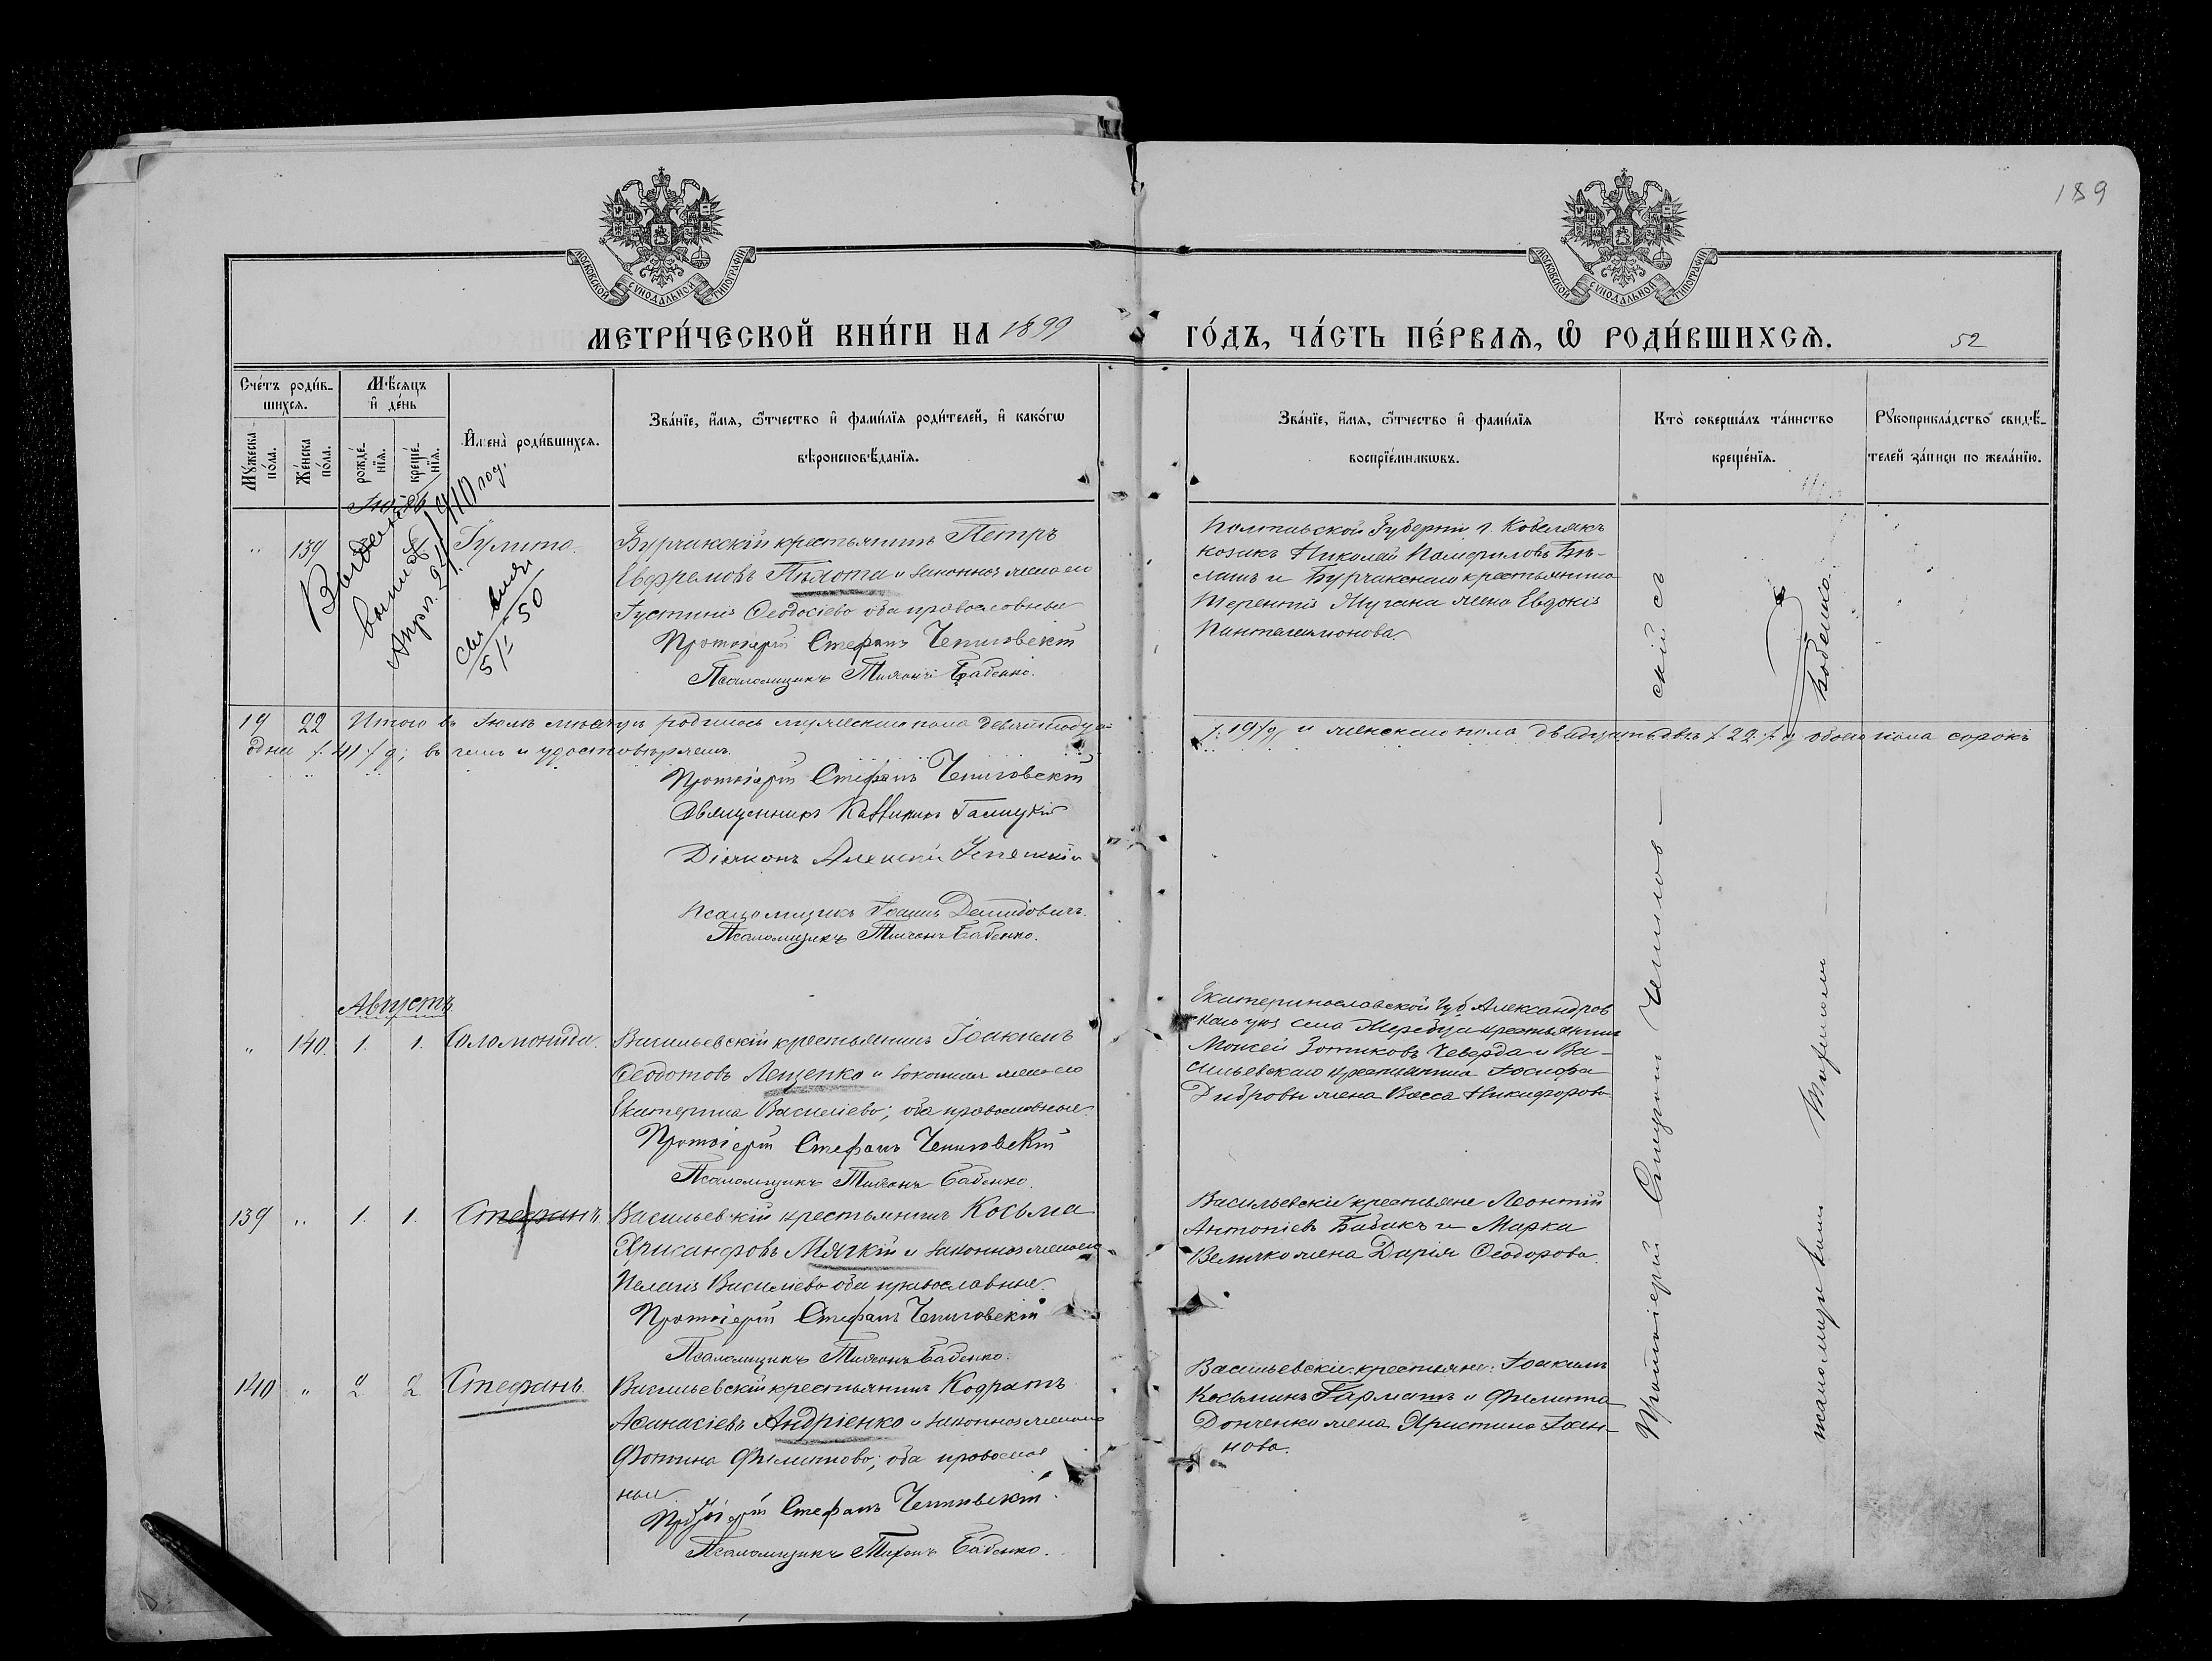 189
МОСКОВСКОЙ СѴНОДАЛЬНОЙ ТИПОГРАФІИ
МОСКОВСКОЙ СѴНОДАЛЬНОЙ ТИПОГРАФІИ
МЕТРИ́ЧЕСКОЙ КНИ́ГИ НА 1899
ГО́ДЪ, ЧА́СТЬ ПЕ́РВАѦ, Ѡ҆ РОДИ́ВШИХСѦ.
52
Сче́тъ роди́в-
шихсѧ.
Мѣ́сѧцъ
и҆ де́нь
Мꙋ́жеска
по́ла.
Же́нска
по́ла.
рожде́-
нїѧ.
креще́-
нїѧ.
И҆мена̀ роди́вшихсѧ.
Зва́нїе, и҆́мѧ, ѻ҆́тчество и҆ фами́лїѧ роди́телей, и҆ како́гѡ
вѣроисповѣ́данїѧ.
Зва́нїе, и҆́мѧ, ѻ҆́тчество и҆ фами́лїѧ
воспрїе́мникѡвъ.
Кто̀ соверша́лъ та́инство
креще́нїѧ.
Рꙋкоприкла́дство свидѣ́-
телей за́писи по жела́нїю.
139
Іулита.
Апр. 21 1910 год.
51/50
Бурчакскій крестьянинъ Петръ
Ефремовъ и законная жена его
Іустинія Ѳеодосіева оба православные
Протоіерей Стефанъ Чепиговскій
Псаломщикъ Тихонъ Бабенко.
Полтавской Губерніи г. Кобелякъ
козакъ Николай Памфиловъ Бѣ-
и Бурчакскаго крестьянина
Терентія Мугана жена Евдокія
Пантелеимонова.
19 22 Итого въ Іюлѣ мѣсяцѣ родилось мужескаго пола девятнадца
/:19:/ и женскаго пола двадцать два /:22:/ обоего пола сорокъ
одна /:41:/ въ чемъ и удостовѣряемъ.
Протоіерей Стефанъ Чепиговскій
Священникъ Галицкій
Діаконъ Алексій
Псаломщикъ Іоаннъ Демидовичъ.
Псаломщикъ Тихонъ Бабенко.
Августъ.
140. 1. 1. Соломонида.
Васильевскій крестьянинъ Іоакимъ
Ѳеодотовъ Лещенко и законная жена его
Екатерина Василіева; оба православные.
Протоіерей Стефанъ Чепиговскій
Псаломщикъ Тихонъ Бабенко.
Екатеринославской Губ Александров
села крестьянинъ
Моисей Зотиковъ Чеверда и Ва-
сильевскаго крестьянина Іосифа
Дибровы жена Васса Никифорова
139 1. 1. Стефанъ.
Васильевскій крестьянинъ Косьма
Хрисанфовъ Мягкій и законная жена его
Пелагія Василіева оба православные.
Протоіерей Стефанъ Чепиговскій
Псаломщикъ Тихонъ Бабенко.
Васильевскіе крестьяне Леонтій
Антоніевъ Бабакъ и Марка
Величко жена Дарія Ѳеодорова.
140 2. 2. Стефанъ.
Васильевскій крестьянинъ Кодратъ
Аѳанасіевъ Андріенко и законная жена его
Фотина Филиппова; оба православ
ные
Протоіерей Стефанъ Чепиговскій.
Псаломщикъ Тихонъ Бабенко.
Васильевскіе крестьяне: Іоакимъ
Косьминъ Гармашъ и Филиппа
Донченки жена Христина Іоан-
нова.
Протоіерей Стефанъ Чепигов- скій съ
псаломщикомъ Тихономъ Бабенко.